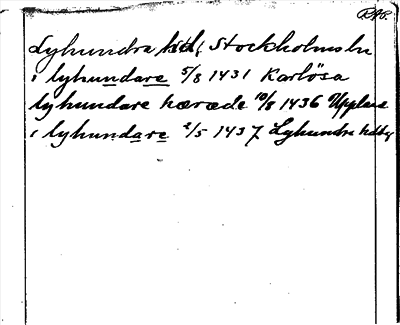 RAp.
Lyhundra hd, Stockholms ln
i lyhundare 5/8 1431 Karlösa
lyhundare hærade 10/8 1436 Upplands
i lyhundare 2/5 1437 Lyhundra hdbg